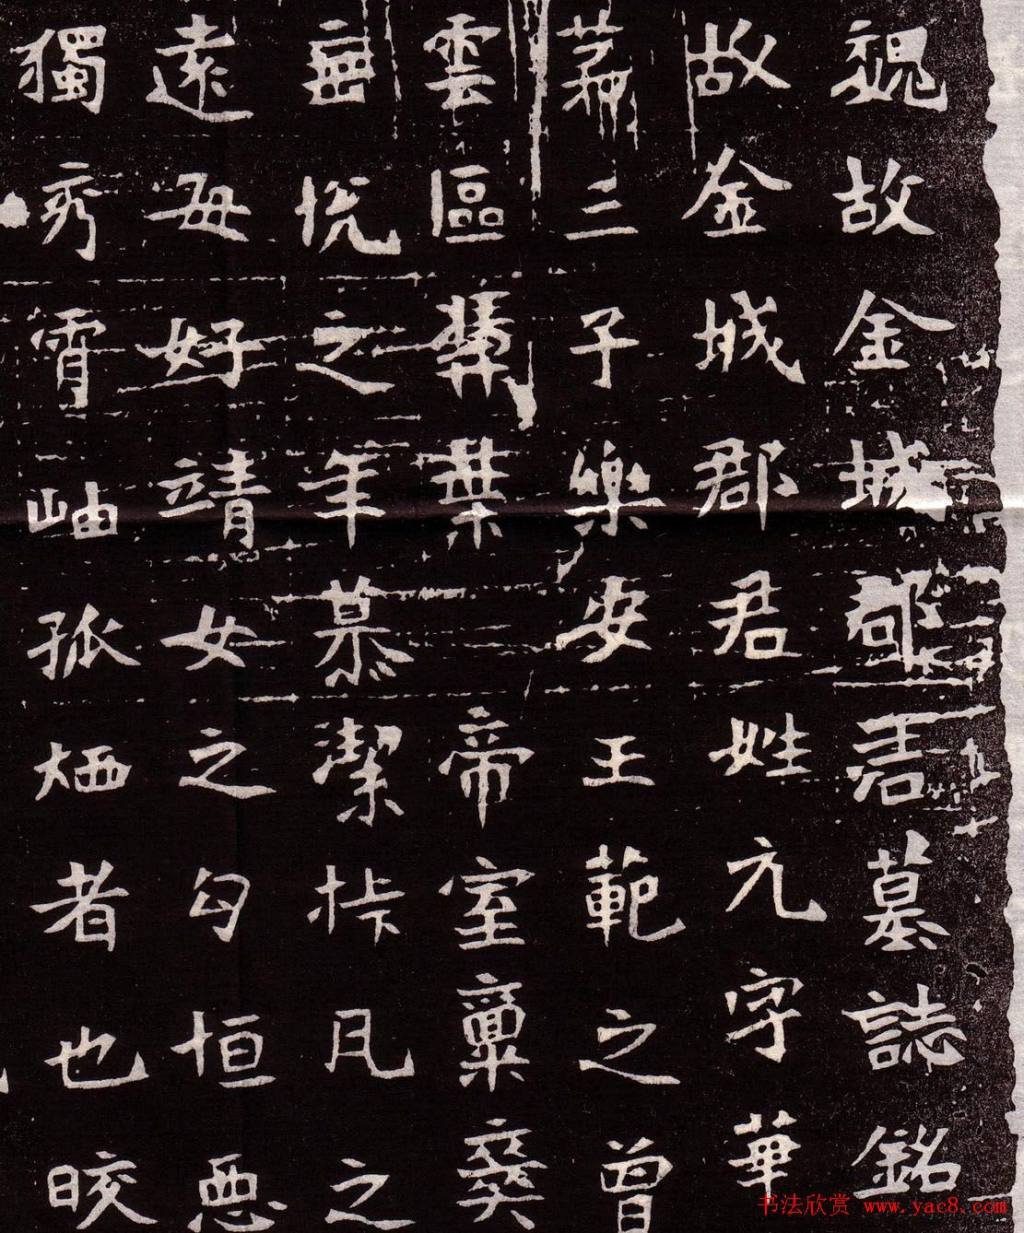 魏故金城郡君墓誌銘
故金城郡君姓元字華
苐三子樂安王範之曾
雲區葉帝室稟
悅之年慕潔凡之
遠毋好靖女之勾恒惡
獨秀霄岫孤炳者也皎
书法欣赏 www.yac8.com